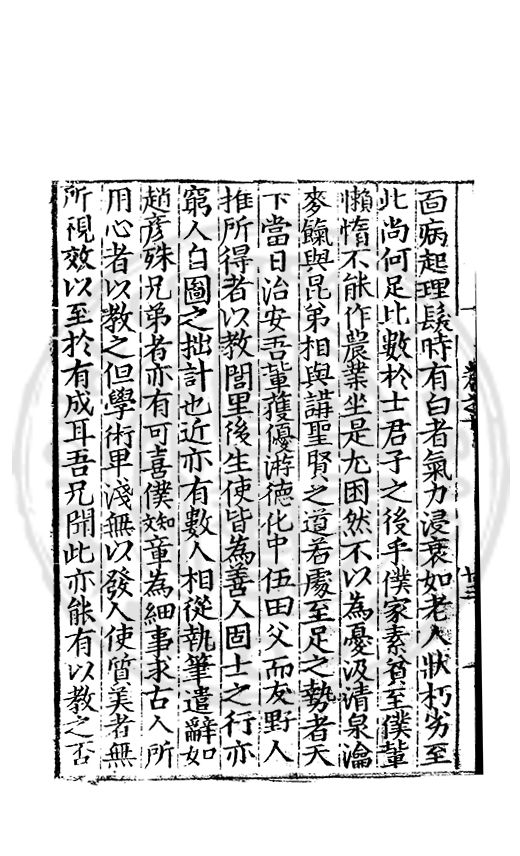 面病起理鬚時有白者氣力浸衰如老人狀朽劣至
此尚何足比數於士君子之後乎僕家素貧至僕輩
懶惰不能作農業坐是尤困然不以為憂汲清泉瀹
麥飯與昆弟相與講聖賢之道若處至足之勢者天
下當日治安吾輩獲優游德化中伍田父而友野人
推所得者以教閭里後生使皆為善人固士之行亦
窮人自圖之拙計也近亦有數人相從執筆遣辭如
趙彥殊兄弟者亦有可喜僕知文童為細事求古人所
用心者以教之但學術卑淺無以發人使質美者無
所視效以至於有成耳吾兄聞此亦能有以教之否